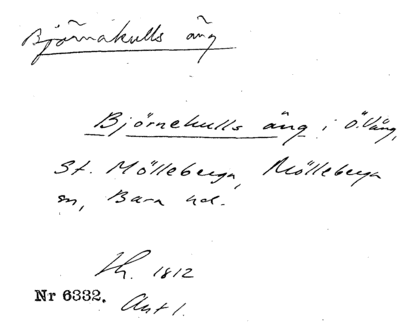 Björnakulls äng
Björnekulls äng i Ö. Vång,
St. Mölleberga, Mölleberga
sn, Bara hd.
Lh. 1812
Nr 6332. Akt 1.